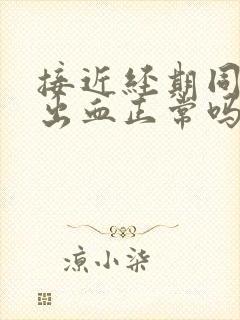 接近经期同
出血正常吗
凉小柒